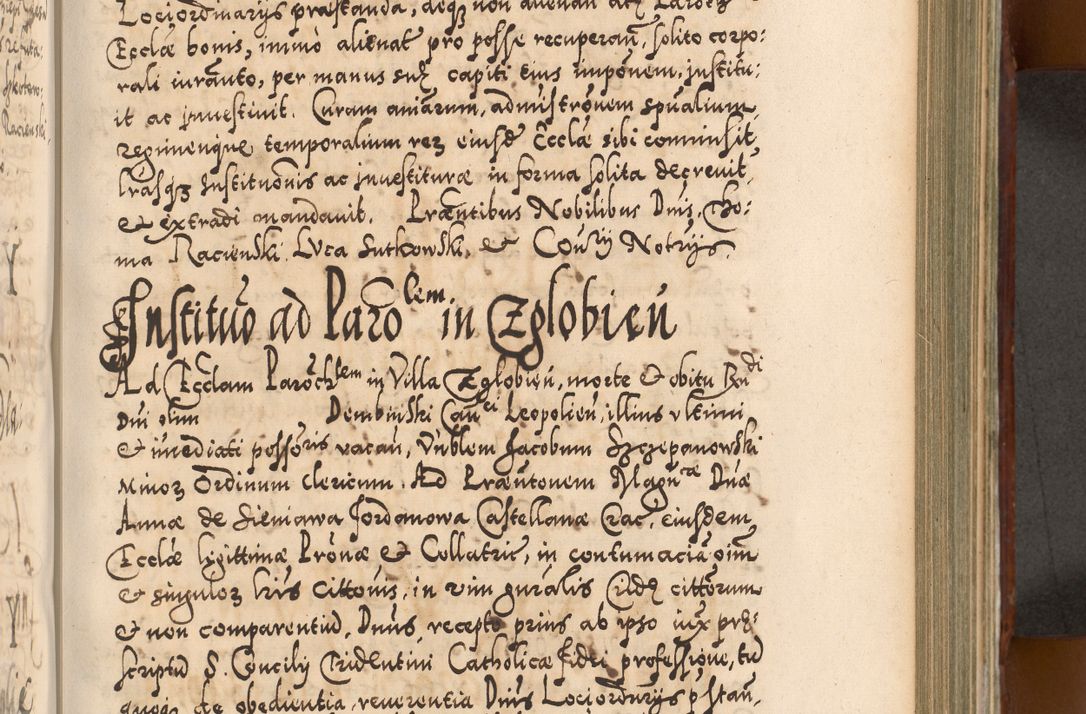 Lociordinarijs præstanda, deq₃ non alienan
Ecclæ bonis, immo alienat pro posse recuperan, solito corpo:
rali iuranto, per manus suæ capiti eius imponem. institu:
it ac inuestiuit. Curam aniarum, admistronem spualium
regimenque temporalium rerz eiusd Ecclæ sibi commisit,
lrasq₃ Institutionis ac inuestituræ in forma solita decreuit,
et extradi mandauit. Præntibus Nobilibus Dnis, Tho:
ma Racienski, Luca Sutkowski, et Cou Notrijs.
Institutio ad Paro lem in Zglobien
Ad Ecclam Paroch lem in Villa Zglobien, morte et obitu Rndi
Dni olim Dembinski Can ci Leopolien, illius vltimi
et imediati possoris vacan, Vnblem Jacobum Szczepanowski
Minorz Ordinum Clericum. Ad Præntonem Magn cæ Dnæ
Annæ de Sieniawa Jordanowa Castellanæ Crac, eiusdem
Ecclæ ligittimæ Pronæ et Collatric, in contumaciā oīm
et singulorz lris cittonis, in vim gnralis Crid cittorum
et non comparentiū, Dnus, recepto prius ab ipso iux præ:
scriptū S. Concilij Tridentini Catholicæ fidei professione, tū
quoq₃ de obedientia, reuerentia Dnis Lociordnrijs p stan,